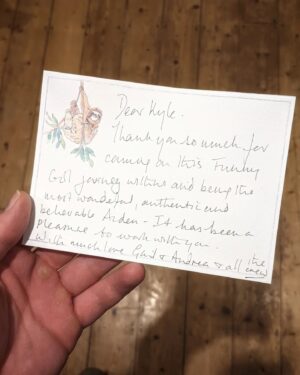 Dear Kyle.
Thank you so much for
coming on this Funny
Girl journey with us and being the
most wonderful, authentic and
believable Arden - It has been a
pleasure to work with you.
With much love & Andrea & all the
crew